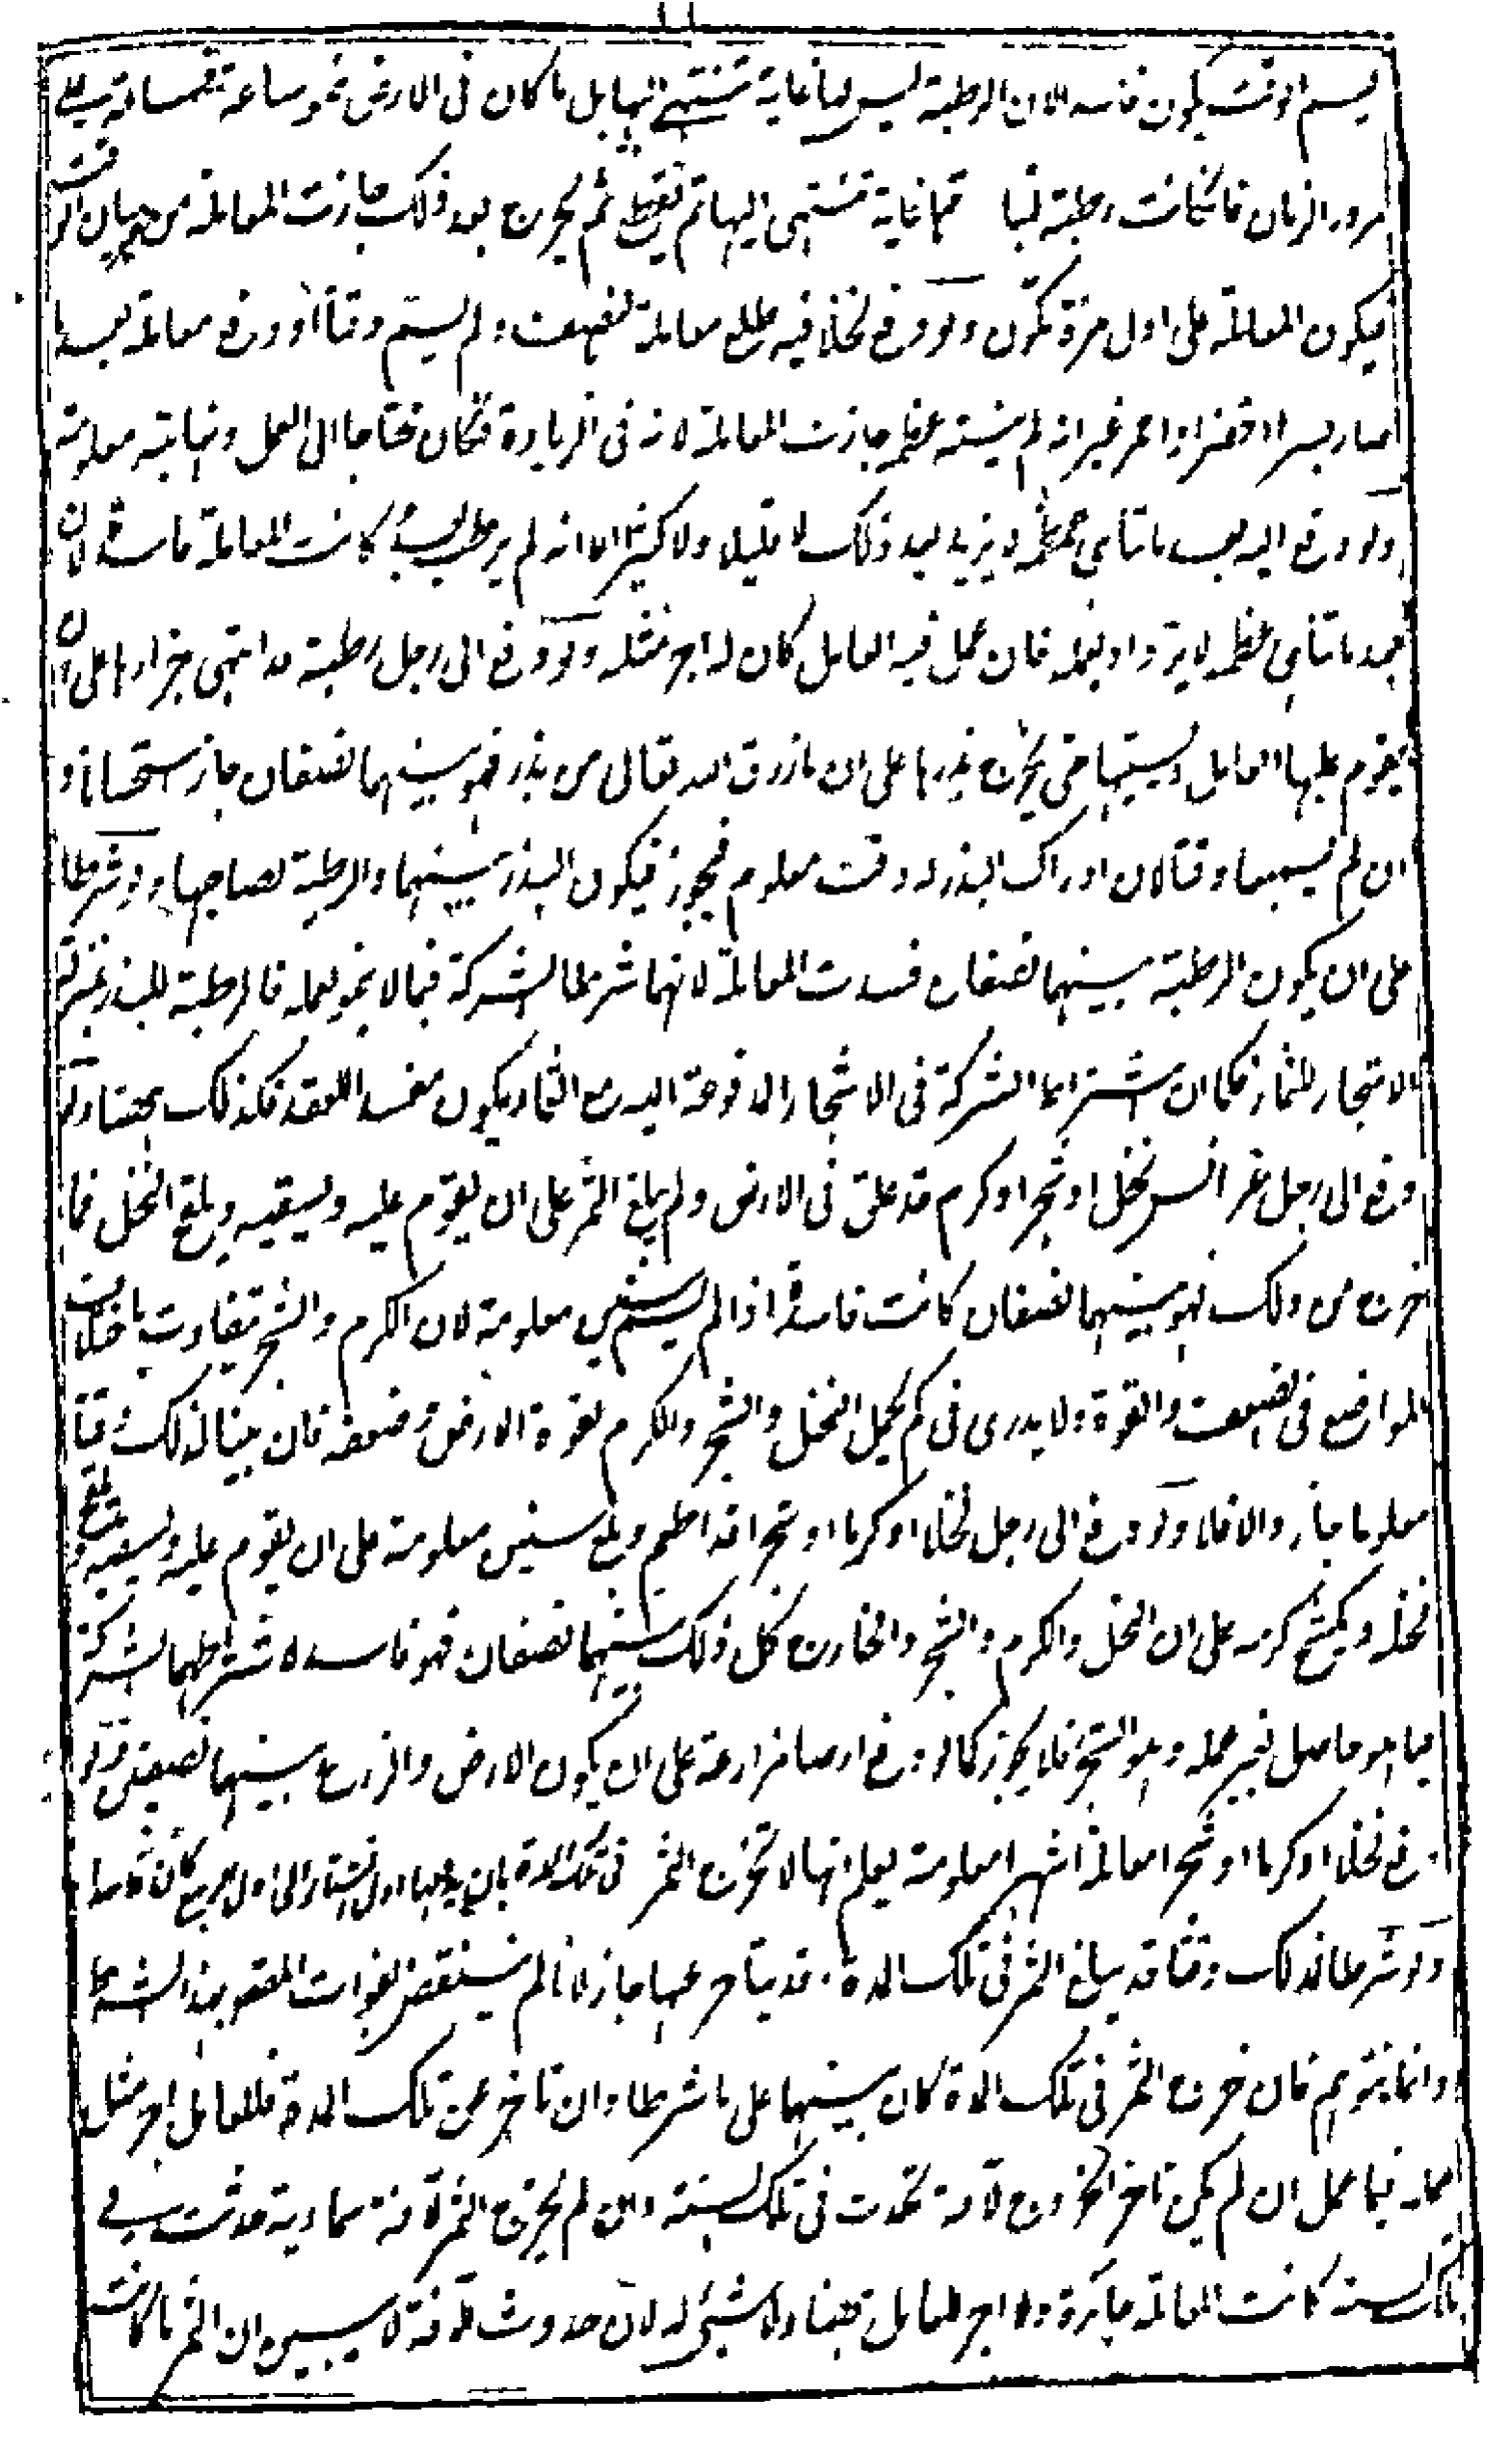 يسم الوقت يكون فاسد الان الرطبة ليس لها غاية تنتهي اليها بل ما كان في الارض نحو ساعة فساعة على
مرور الزمان فان كانت رطبة لها غاية تنتهي اليها ثم تقطع ثم يخرج بعد ذلك جازت المعاملة من بيان الوقت
فيكون المعاملة على اول مرة تكون ولو دفع نخلا فيه طلع معاملة بنصف ولم يسم وقتا او دفع معاملة بعد ما
صار بسرا اخضر او احمر غير انه لم ينته عظمه جازت المعاملة لانه في الزيادة فكان محتاجا الى العمل ونهايته معلومة
ولو دفع اليه بعد ما تناهى عظمه لا يزيد بعد ذلك لا قليلا ولا كثيرا الا انه لم يرطب بسره كانت المعاملة فاسدة لان
بعد ما تناهى عظمه لا يزداد بعمله فان عمل فيه العامل كان له اجر مثله ولو دفع الى رجل رطبة قد انتهى جزازها على ان
يقوم عليها العامل ويسقيها حتى يخرج بذرها على ان ما رزق الله تعالى من بذر فهو بينهما نصفان جاز استحسانا و
ان لم يسميا وقتا لان ادراك البذر له وقت معلوم فيجوز فيكون البذر بينهما والرطبة لصاحبها ولو شرطا
على ان يكون الرطبة بينهما نصفان فسدت المعاملة لانهما شرطا الشركة فيما لا ينمو بعمله فالرطبة للبذر بمنزلة
الاشجار للثمار فكما ان اشتراط الشركة في الاشجار المدفوعة اليه مع الثمار يكون مفسد العقد فكذلك ههنا ولو
دفع الى رجل غرائس نخل او شجر او كرم قد علق في الارض ولم يبلغ الثمر على ان يقوم عليه ويسقيه ويلقح النخل فما
خرج من ذلك فهو بينهما نصفان كانت فاسدة اذا لم يسم سنين معلومة لان الكرم والشجر يتفاوت باختلاف
المواضع في الضعف والقوة ولا يدرى في كم يحمل النخل والشجر والكرم لقوة الارض وضعفه فان بينا لذلك وقتا
معلوما جاز والا فلا ولو دفع الى رجل نخلا او كرما او شجرا قد اطعم وبلغ سنين معلومة على ان يقوم عليه ويسقيه ويلقح
نخله ويكسح كرمه على ان النخل والكرم والشجر والخارج كل ذلك بينهما نصفان فهو فاسد لاشتراطهما الشركة
فيما هو حاصل بغير عمله وهو الشجر فلا يجوز كما لو دفع ارضا مزارعة على ان يكون الارض والزرع بينهما نصفين ولو
دفع نخلا او كرما او شجرا معاملة اشهرا معلومة يعلم انها لا تخرج الثمر في تلك المدة بان دفعها اول الشتاء الى اول الربيع كان فاسدا
ولو شرطا لذلك وقتا قد يبلغ الثمر في تلك المدة وقد يتاخر عنها جاز لانا لم نستيقن بفوات المقصود بهذا الشرط
وانما يتوهم فان خرج الثمر في تلك المدة كان بينهما على ما شرطا وان تاخر عن تلك المدة فللعامل اجر مثل
عمله فيما عمل ان لم يكن تاخر الخروج لآفة تحدث في تلك السنة وان لم يخرج الثمر لآفة سماوية حدثت في
تلك السنة كانت المعاملة جائزة ولا اجر للعامل ههنا ولا شيء له لان حدوث الآفة لا يتبين ان الثمر ما كانت